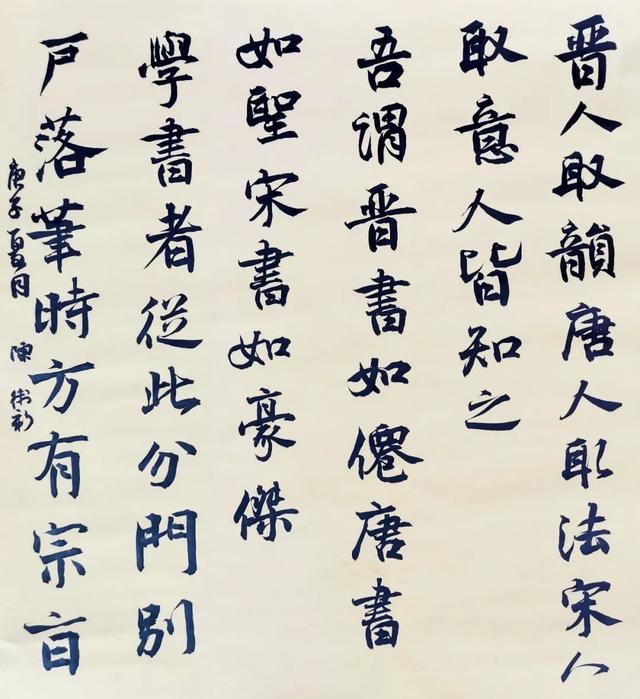 晋人取韻唐人取法宋人
取意人皆知之
吾謂晋書如僊唐書
如聖宋書如豪傑
學書者從此分門別
戶落筆時方有宗旨
庚子夏月 陳